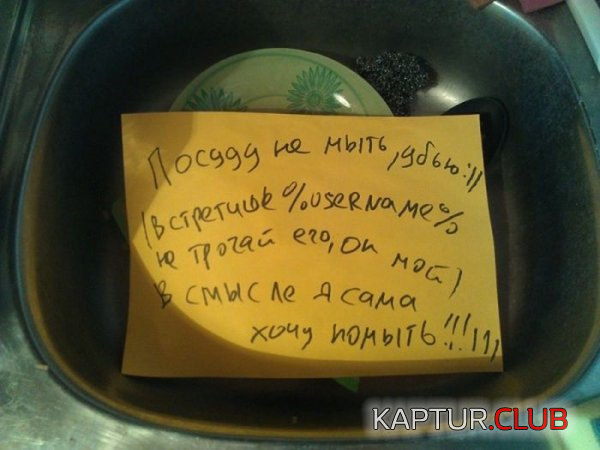 Посуду не мыть, убью:))
(встретишь %username%
не трогай его, он мой)
в смысле я сама
хочу помыть!!!)))
KAPTUR.CLUB